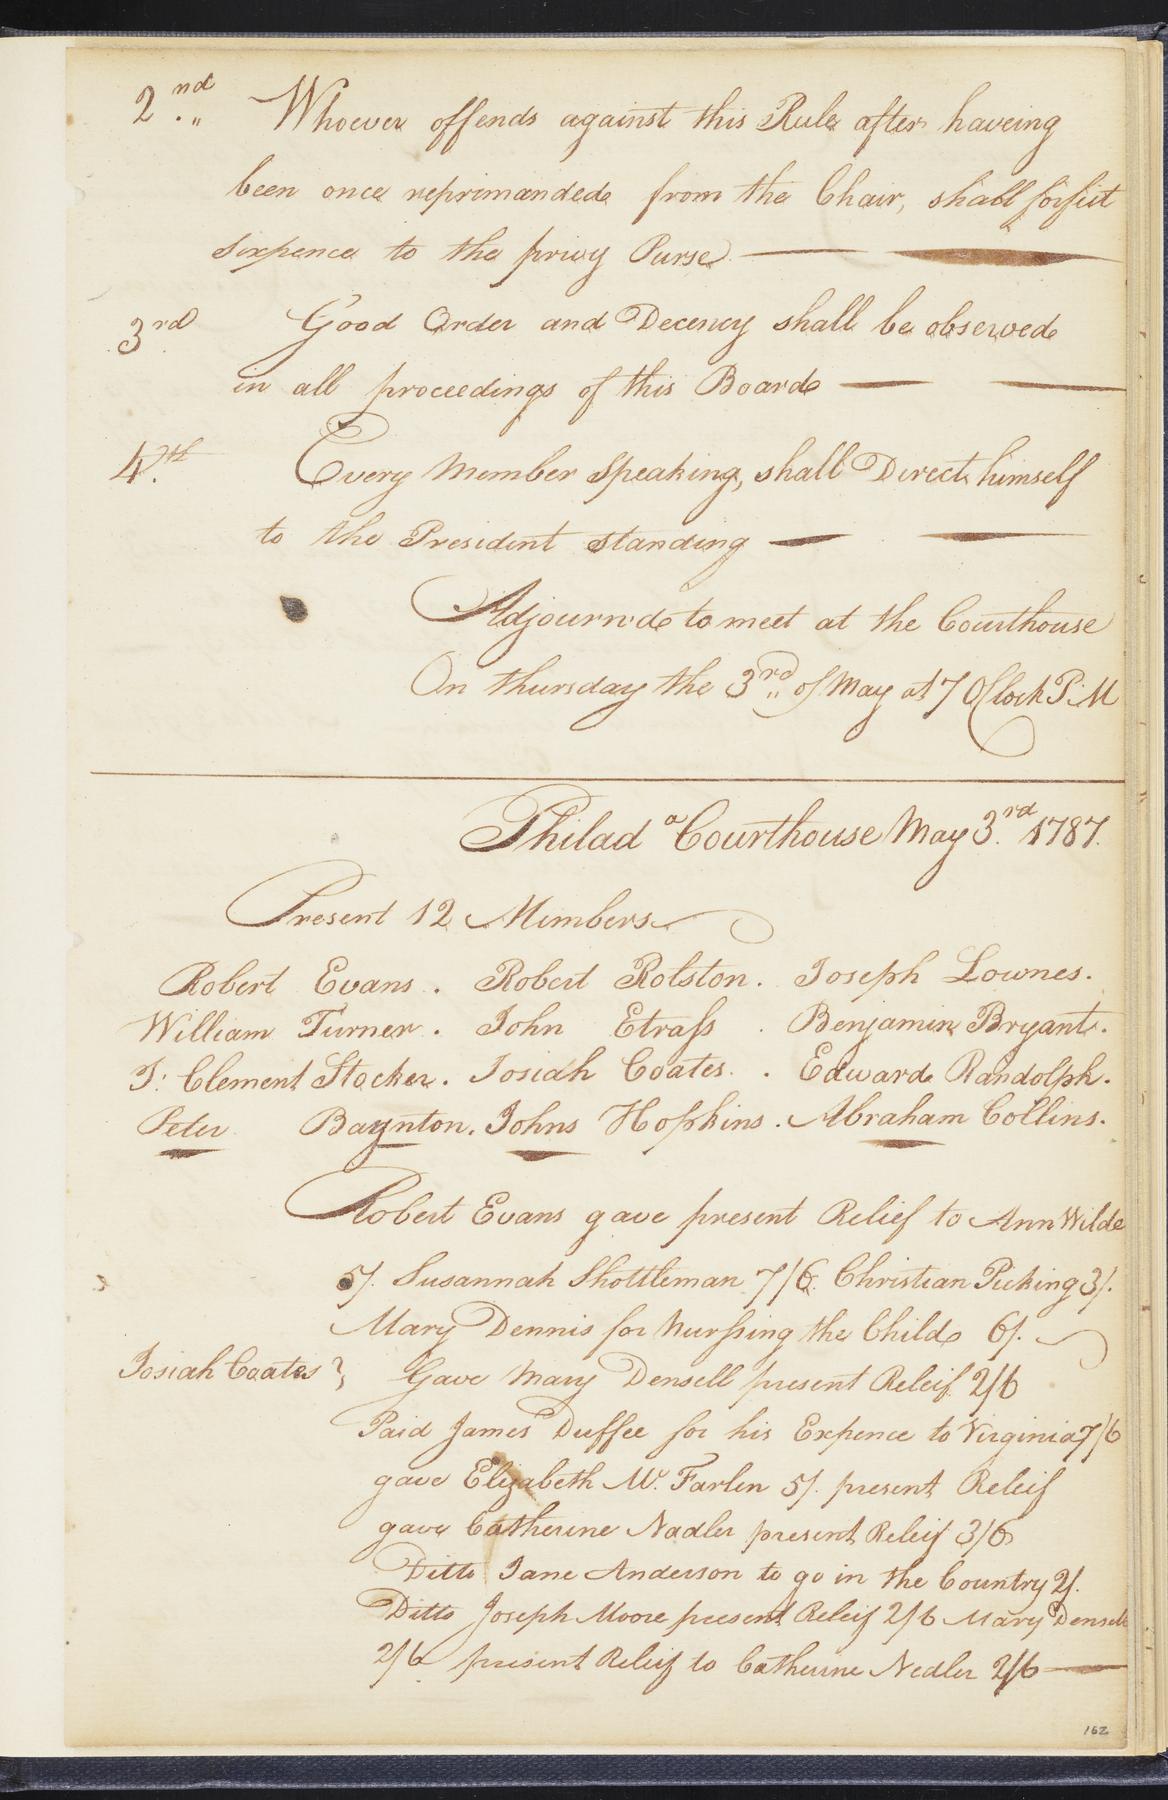 2nd Whoever offends against this Rule after haveing
been once reprimanded from the Chair, shall forfist
sixpence to the privy Purse
3rd Good Order and Decency shall be observed
in all proceedings of this Board
4th Every Member Speaking, shall Direct himself
to the President standing
Adjourn'd to meet at the Courthouse
On thursday the 3rd of May at 7 OClock P.M
Philada Courthouse May 3rd 1787.
Present 12 Members
Robert Evans. Robert Rolston. Joseph Lownes.
William Turner. John Etrass. Benjamin Bryant.
J: Clement Stocker. Josiah Coates. Edward Randolph.
Peter Baynton. Johns Hopkins. Abraham Collins.
Robert Evans gave present Relief to Ann Wilde
5/. Susannah Shottleman 7/6. Christian Picking 3/.
Mary Dennis for Nurssing the Child 6/.
Josiah Coates Gave Mary Densell present Releif 2/6
Paid James Duffee for his Expence to Virginia 7/6
gave Elizabeth Mc. Farlen 5/. present Releif
gave Catherine Nadler present Releif 3/6
Ditto Jane Anderson to go in the Country 2/.
Ditto Joseph Moore present Releif 2/6 Mary Densell
2/6 present Releif to Catherine Nedler 2/6
162